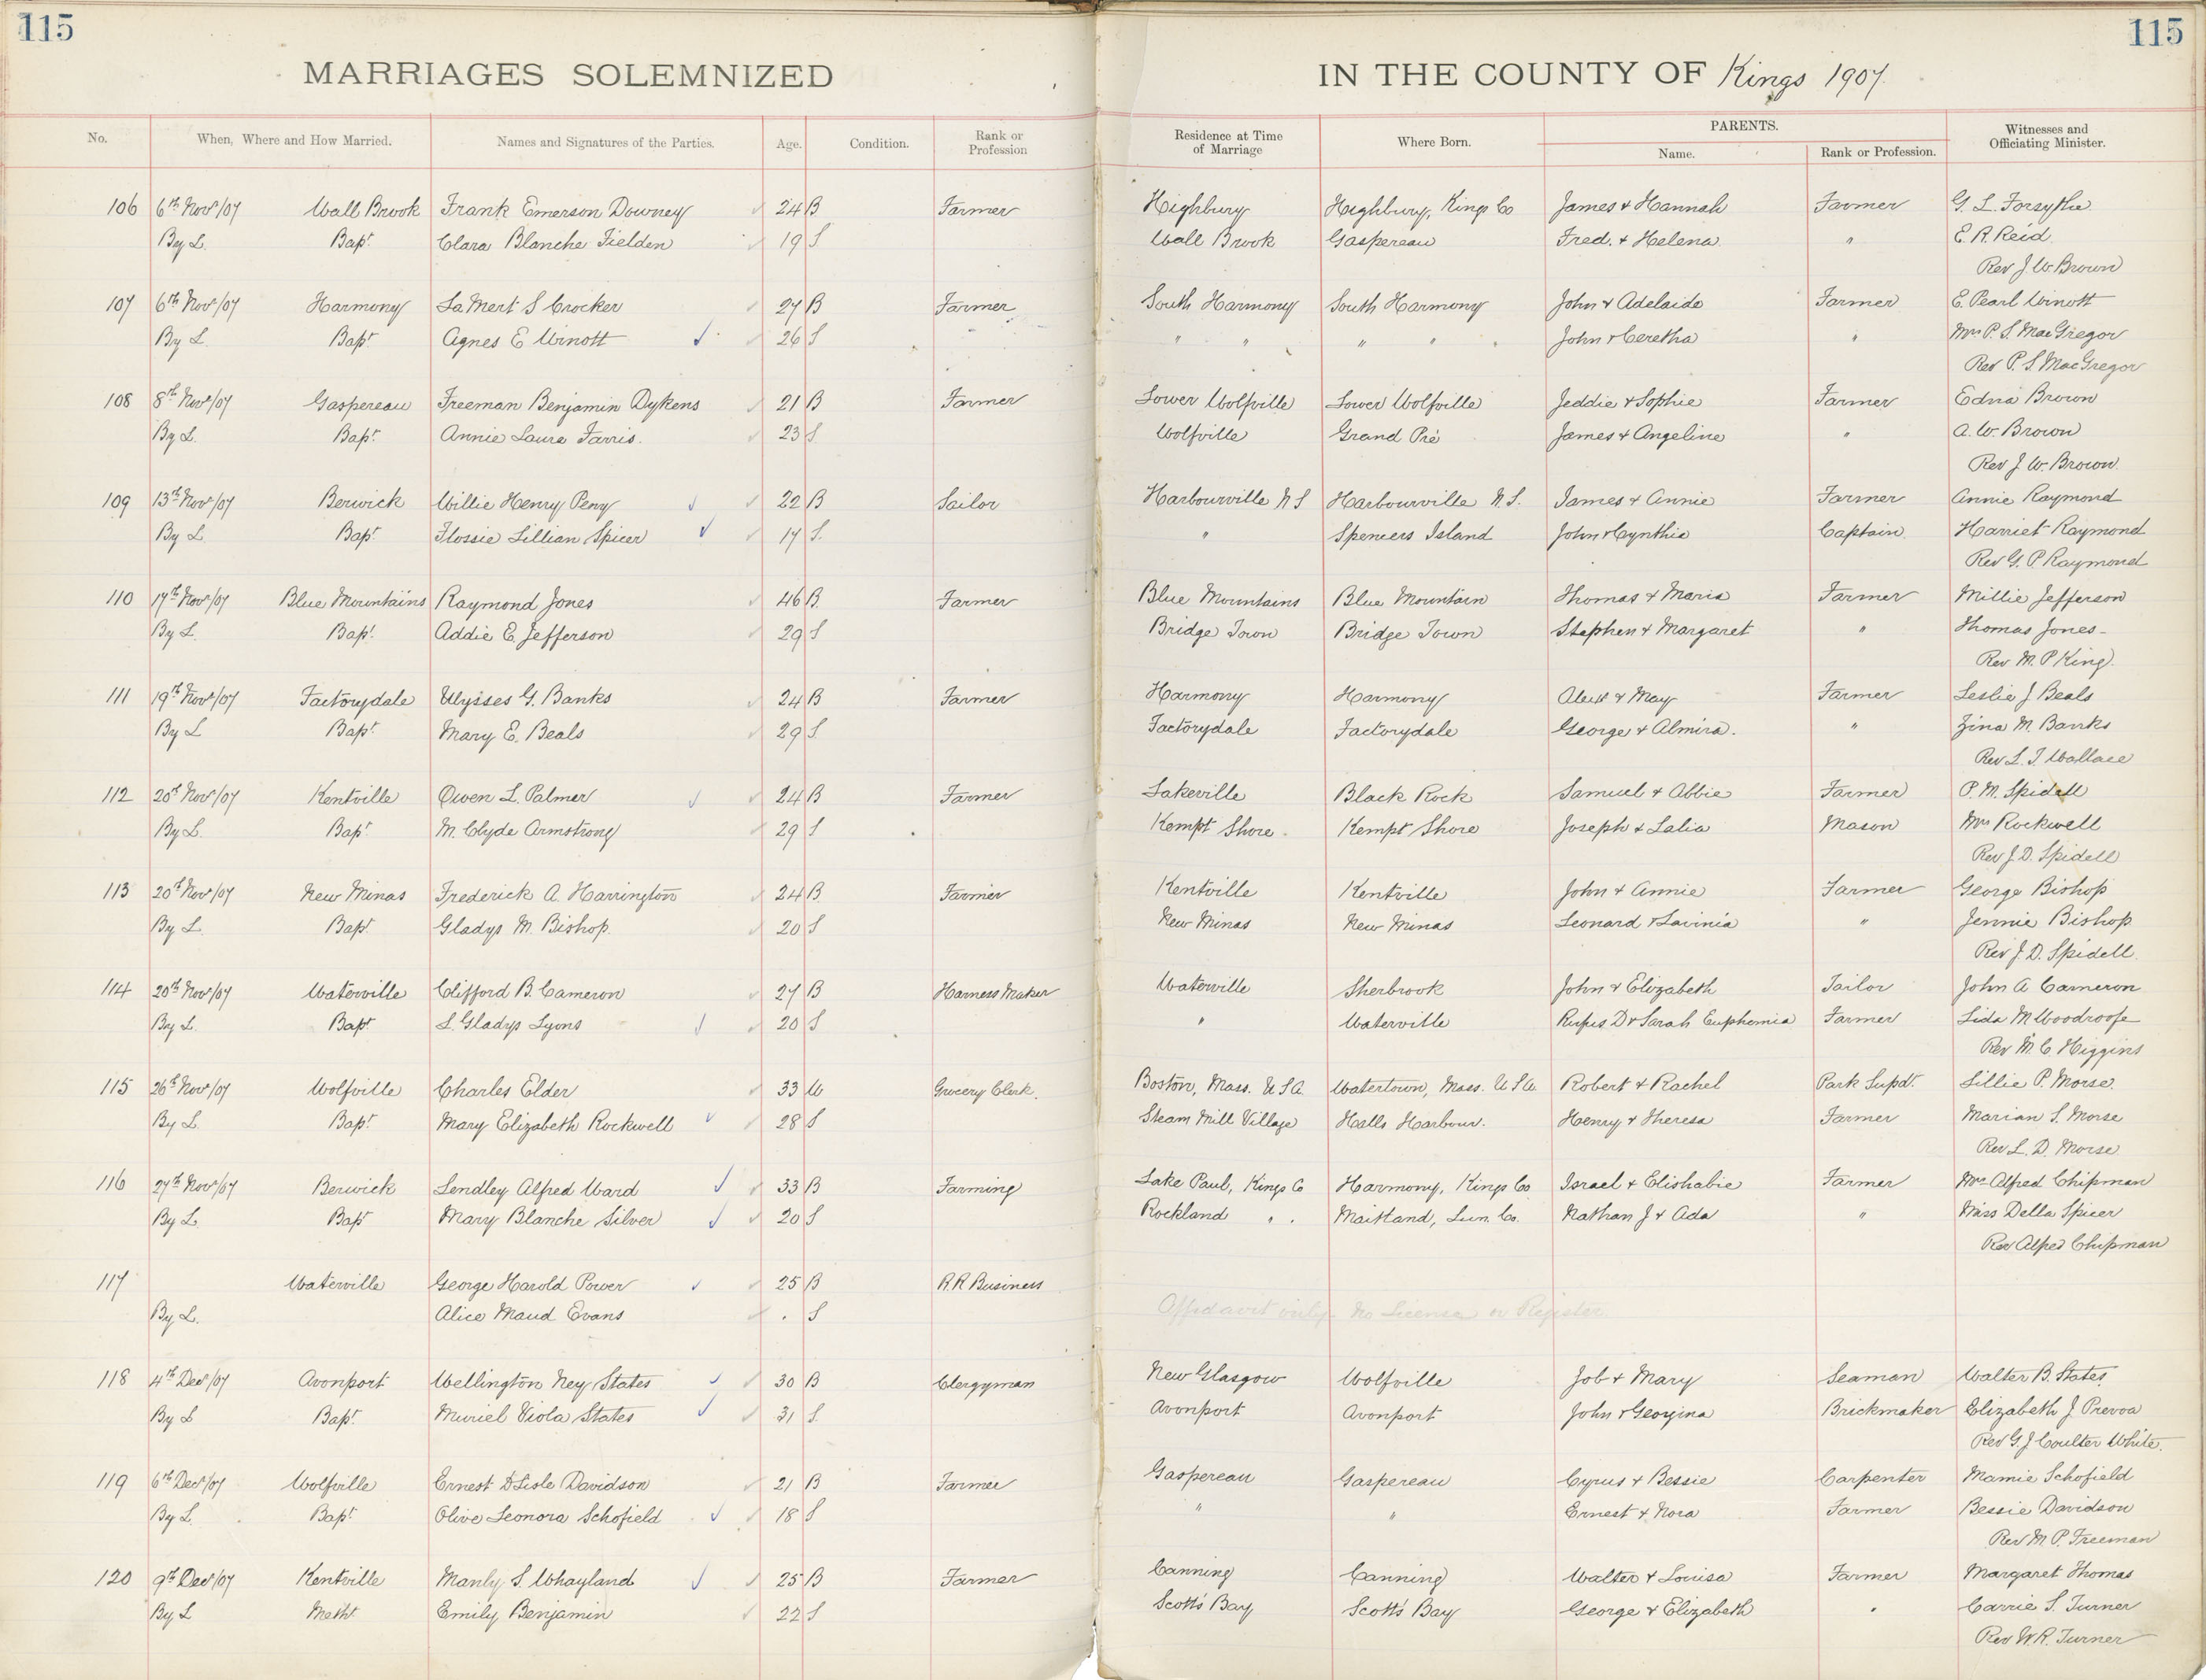 115
115
MARRIAGES SOLEMNIZED IN THE COUNTY OF Kings 1907.
No. When, Where and How Married. Names and Signatures of the Parties. Age. Condition. Rank or Profession Residence at Time of Marriage Where Born. PARENTS. Name. Rank or Profession. Witnesses and Officiating Minister.
106 6th Novr/07 Wall Brook Frank Emerson Downey 24 B Farmer Highbury Highbury, Kings Co James & Hannah Farmer G. L. Forsythe
By L. Bapt. Clara Blanche Fielden 19 S Wall Brook Gaspereau Fred. & Helena " E. R. Reid
Rev J. W. Brown
107 6th Novr/07 Harmony LaMert S Crocker 27 B Farmer South Harmony South Harmony John & Adelaide Farmer E. Pearl Winott
By L. Bapt. Agnes E Winott 26 S " " " " John & Ceretha " Mrs P. S. MacGregor
Rev P. S. MacGregor
108 8th Novr/07 Gaspereau Freeman Benjamin Dykens 21 B Farmer Lower Wolfville Lower Wolfville Jeddie & Sophie Farmer Edna Brown
By L. Bapt. Annie Laura Farris. 23 S Wolfville Grand Pré James & Angeline " A. W. Brown
Rev J. W. Brown.
109 13th Novr/07 Berwick Willie Henry Peny 22 B Sailor Harbourville N S Harbourville N. S. James & Annie Farmer Annie Raymond
By L. Bapt. Flossie Lillian Spicer 17 S. " Spencers Island John & Cynthia Captain Harriet Raymond
Rev G. P Raymond
110 17th Novr/07 Blue Mountains Raymond Jones 46 B. Farmer Blue Mountains Blue Mountain Thomas & Maria Farmer Millie Jefferson
By L. Bapt. Addie E. Jefferson 29 S Bridge Town Bridge Town Stephen & Margaret " Thomas Jones
Rev M. P King.
111 19th Novr/07 Factorydale Ulysses G. Banks 24 B Farmer Harmony Harmony & May Farmer Leslie J Beals
By L Bapt. Mary E. Beals 29 S. Factorydale Factorydale George & Almira. " Zina M. Banks
Rev L. J Wallace
112 20th Novr/07 Kentville Owen L. Palmer 24 B Farmer Lakeville Black Rock Samuel & Abbie Farmer P. M. Spidell
By L. Bapt. M. Clyde Armstrong 29 S Kempt Shore Kempt Shore Joseph & Lalia Mason Mrs Rockwell
Rev J. D. Spidell
113 20th Novr/07 New Minas Frederick A. Harrington 24 B. Farmer Kentville Kentville John & Annie Farmer George Bishop
By L. Bapt. Gladys M. Bishop. 20 S New Minas New Minas Leonard & Lavinia " Jennie Bishop
Rev J. D. Spidell.
114 20th Novr/07 Waterville Clifford B. Cameron 27 B Harness Maker Waterville Sherbrook John & Elizabeth Tailor John A Cameron
By L. Bapt L. Gladys Lyons 20 S " Waterville Rufus D & Sarah Euphemia Farmer Lida M Woodroofe
Rev M. C. Higgins
115 26th Novr/07 Wolfville Charles Elder 33 W Grocery Clerk. Boston, Mass. U S A. Watertown, Mass. U S A Robert & Rachel Park Supdt. Lillie P. Morse.
By L. Bapt. Mary Elizabeth Rockwell 28 S Steam Mill Village Halls Harbour. Henry & Theresa Farmer Marian S. Morse
Rev L. D. Morse
116 27th Novr/07 Berwick Lendley Alfred Ward 33 B Farming Lake Paul, Kings Co Harmony, Kings Co Israel & Elishabie Farmer Mrs Alfred Chipman
By L. Bapt Mary Blanche Silver 20 S Rockland " . Maitland, Lun. Co. Nathan J & Ada " Miss Della Spicer
Rev Alfred Chipman
117 Waterville George Harold Power 25 B R. R Business
By L. Alice Maud Evans . S Affidavit only No License or Register
118 4th Decr/07 Avonport Wellington Ney States 30 B Clergyman New Glasgow Wolfville Job & Mary Seaman Walter B. States
By L Bapt. Muriel Viola States 31 S. Avonport Avonport John & Georgina Brickmaker Elizabeth J Prevoa
Rev G. J Coulter White.
119 6th Decr/07 Wolfville Ernest DLisle Davidson 21 B Farmer Gaspereau Gaspereau Cyrus & Bessie Carpenter Mamie Schofield
By L. Bapt. Olive Leonora Schofield 18 S " " Ernest & Nora Farmer Bessie Davidson
Rev M P. Freeman
120 9th Decr/07 Kentville Manly S. Whayland 25 B Farmer Canning Canning Walter & Louisa Farmer Margaret Thomas
By L Metht Emily Benjamin 22 S Scotts Bay Scotts Bay George & Elizabeth " Carrie S. Turner
Rev W. R. Turner